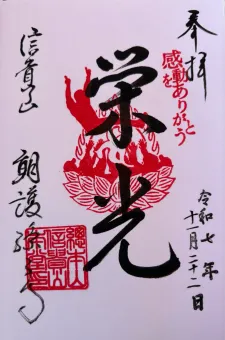 奉拝
感動を
ありがとう
栄光
令和七年
十一月二十二日
信貴山
朝護孫子寺